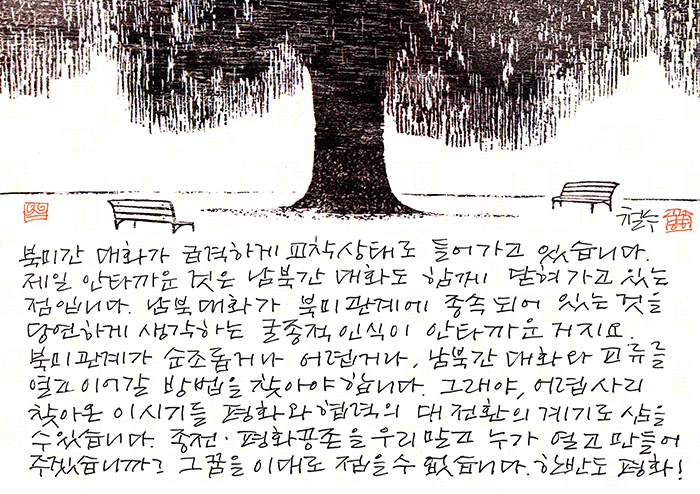 철수
북미간 대화가 급격하게 교착상태로 들어가고 있습니다.
제일 안타까운 것은 남북간 대화도 함께 닫혀가고 있는
점입니다. 남북대화가 북미관계에 종속되어 있는 것을
당연하게 생각하는 굴종적 인식이 안타까운 거지요.
북미관계가 순조롭거나 어렵거나, 남북간 대화와 교류를
열고 이어갈 방법을 찾아야 합니다. 그래야, 어렵사리
찾아온 이 시기를 평화와 협력의 대전환의 계기로 삼을
수 있습니다. 종전·평화공존을 우리말고 누가 열고 만들어
주겠습니까? 그 꿈을 이대로 접을 수 없습니다. 한반도 평화!